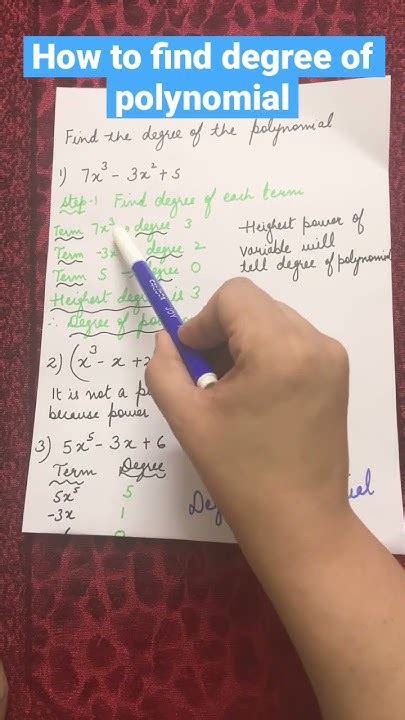 How to find degree of
polynomial
Find the degree of the polynomial
1) 7x³ - 3x² + 5
Step-1 Find degree of each term
Term 7x³ → degree 3
Term -3x degree 2
Term 5 → degree 0
Heighest degree is 3
∴ Degree of
Heighest power of
variable will
tell degree of polynomial
2) (x³ - x + 2
It is not a
because power
3) 5x⁵ - 3x + 6
Term Degree
5x⁵ 5
-3x 1